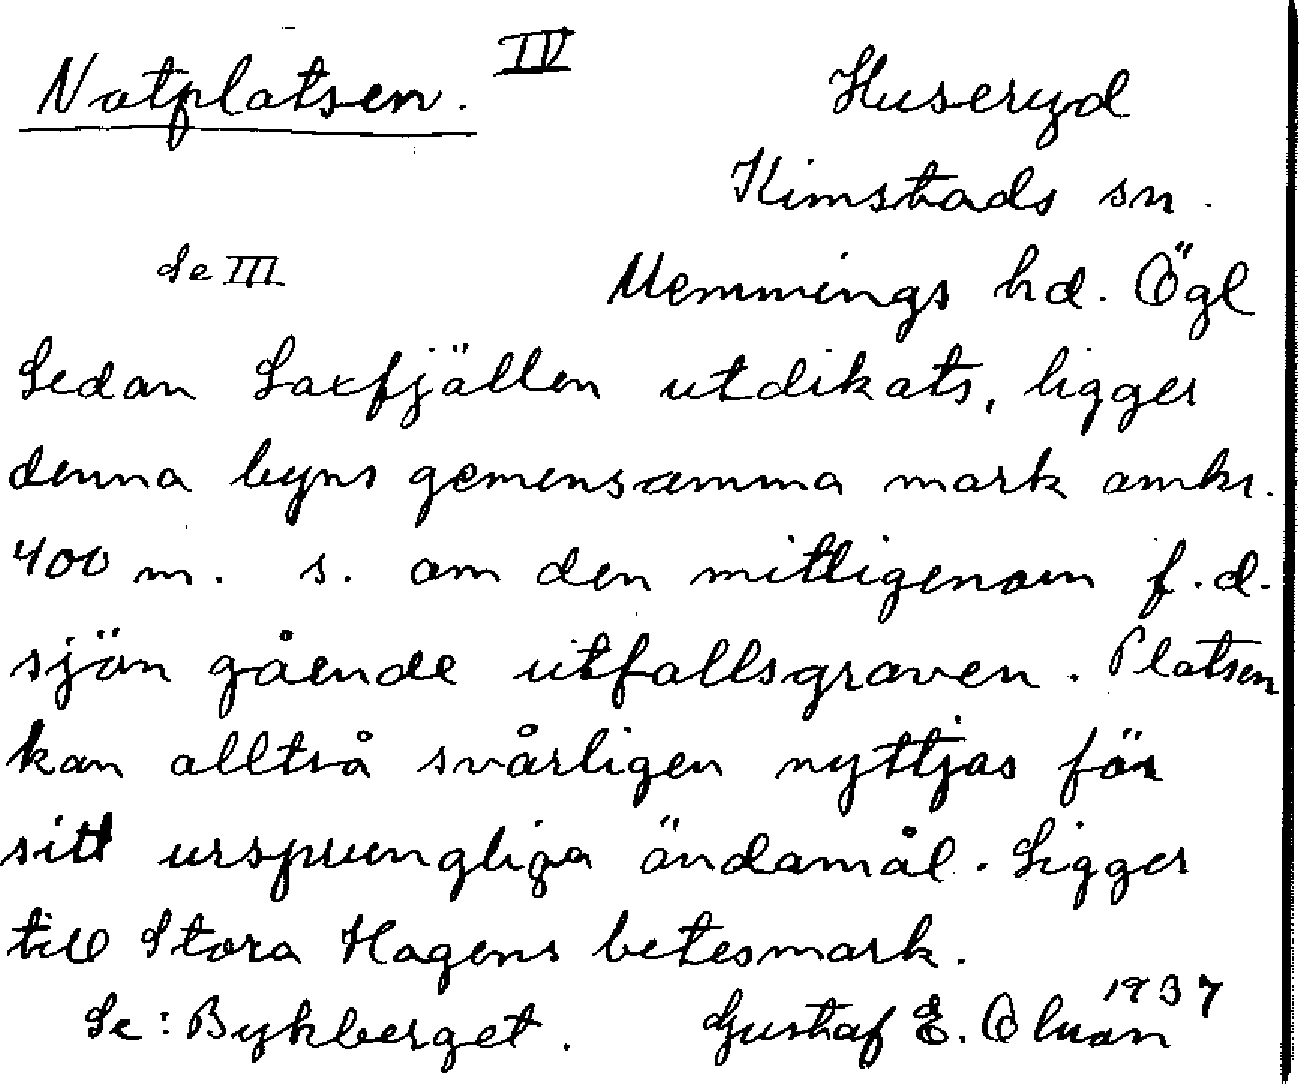 Notplatsen. IV
Huseryd
Kimstads sn.
Se III
Memmings hd. Ögl
Sedan Saxfjällen utdikats, ligger
denna byns gemensamma mark omkr.
400 m. s. om den mittigenom f.d.
sjön gående utfallsgraven. Platsen
kan alltså svårligen nyttjas för
sitt ursprungliga ändamål. Ligger
till Stora Hagens betesmark.
Se: Bykberget. Gustaf E. Olson 1937